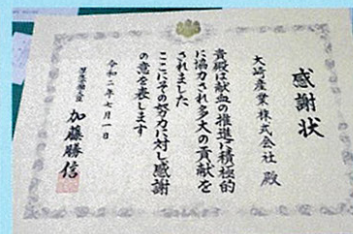 感謝状
大崎産業株式会社 殿
貴殿は献血の推進に積極的
に協力され多大の貢献を
されました
ここにその努力に対し感謝
の意を表します
令和二年七月一日
厚生労働大臣 加藤勝信